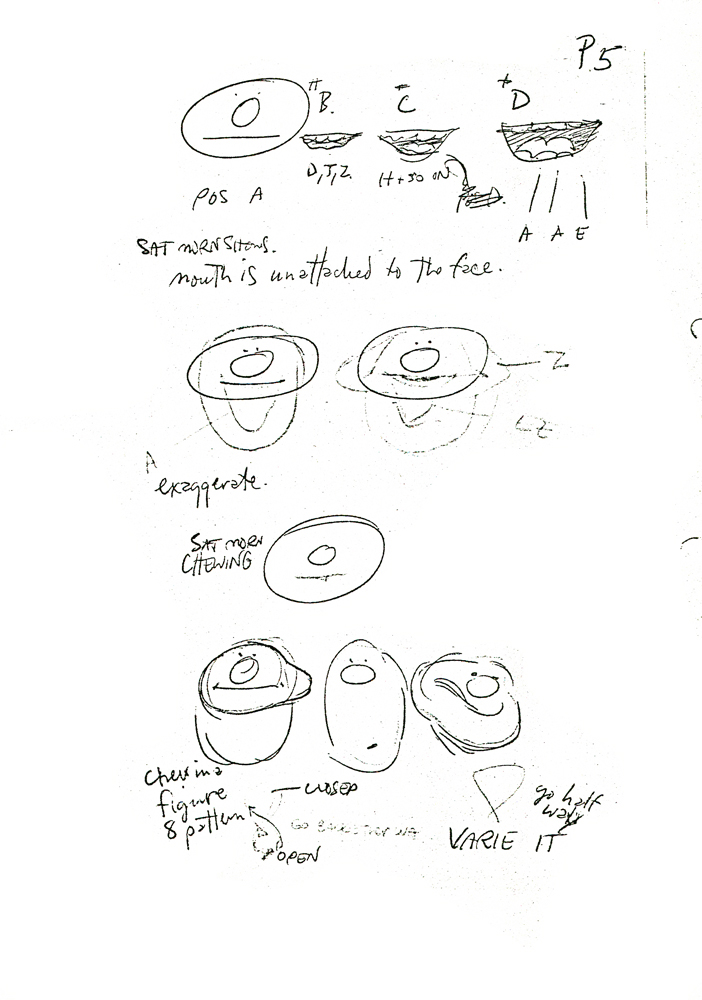 P.5
"B. = C + D
D, J, Z.
H + SO ON
POS A
A A E
SAT MORN SHOWS.
mouth is unattached to the face.
Z
A
exaggerate.
SAT MORN
CHEWING
Chew in a
figure
8 pattern
CLOSED
OPEN
go half
way
VARIE IT